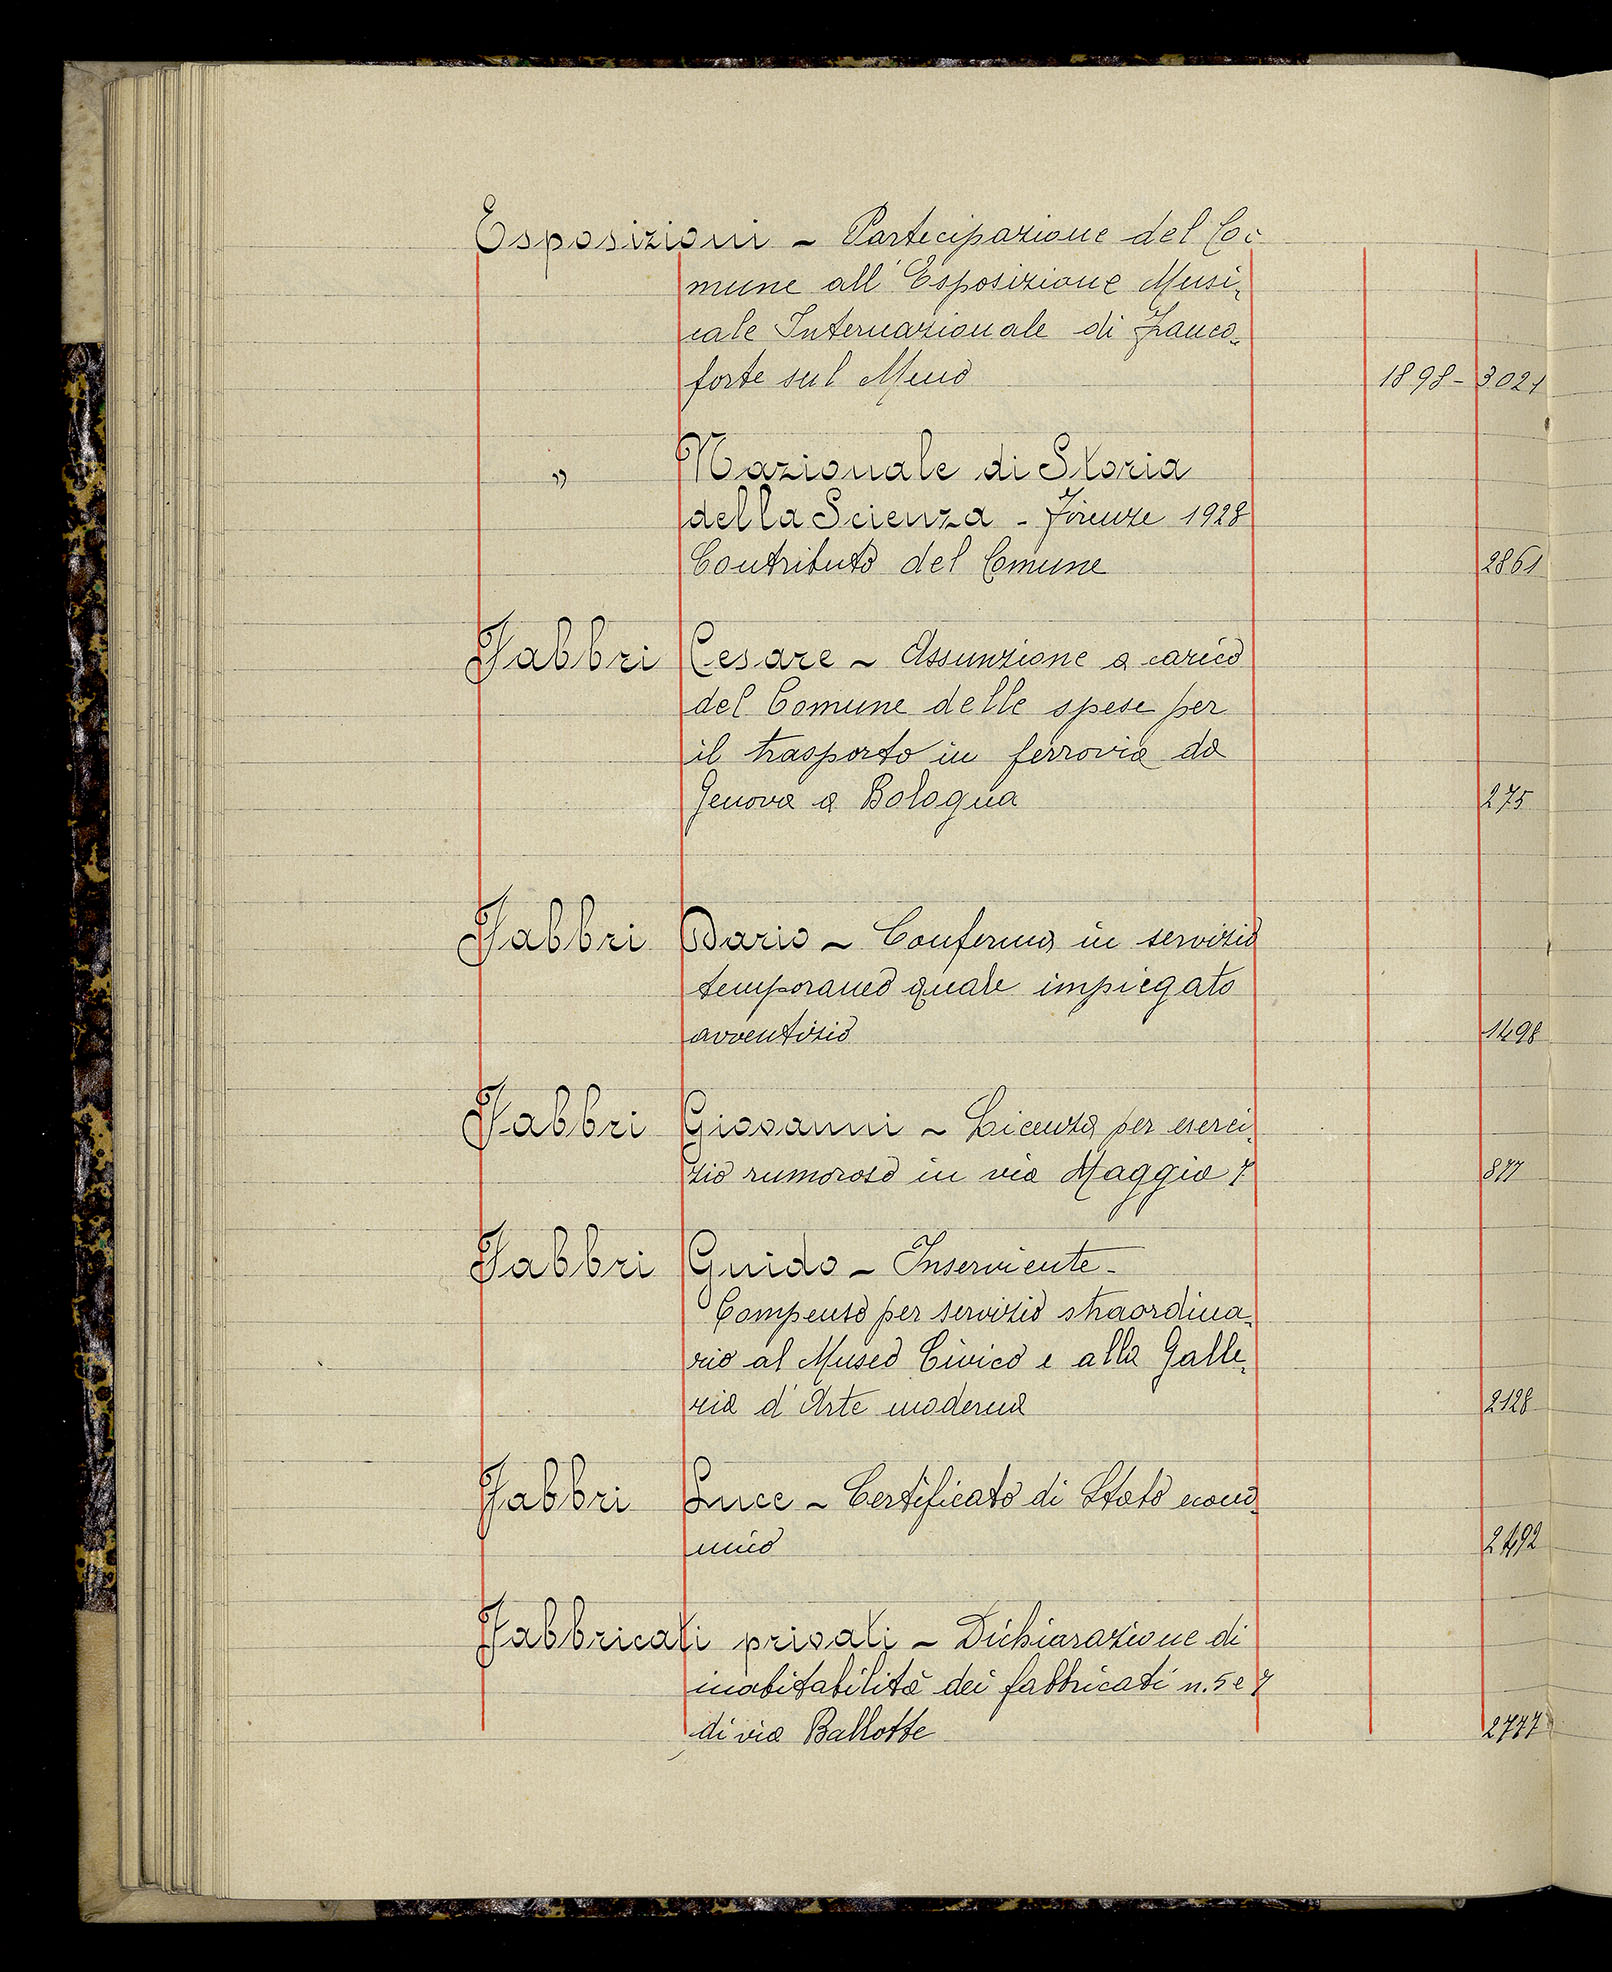 Esposizioni - Partecipazione del Co-
mune all'Esposizione Musi-
cale Internazionale di Franco-
forte sul Meno 1898 - 3021
" Nazionale di Storia
della Scienza - Firenze 1928
Contributo del Comune 2861
Fabbri Cesare - Assunzione a carico
del Comune delle spese per
il trasporto in ferrovia da
Genova a Bologna 275
Fabbri Dario - Conferma in servizio
temporaneo quale impiegato
avventizio 1498
Fabbri Giovanni - Licenza per eserci-
zio rumoroso in via Maggia 7 877
Fabbri Guido - Inserviente -
Compenso per servizio straordina-
rio al Museo Civico e alla Galle-
ria d'Arte moderna 2128
Fabbri Luce - Certificato di Stato econo-
mico 2492
Fabbricati privati - Dichiarazione di
inabitabilità dei fabbricati n. 5 e 7
di via Ballotte 2777